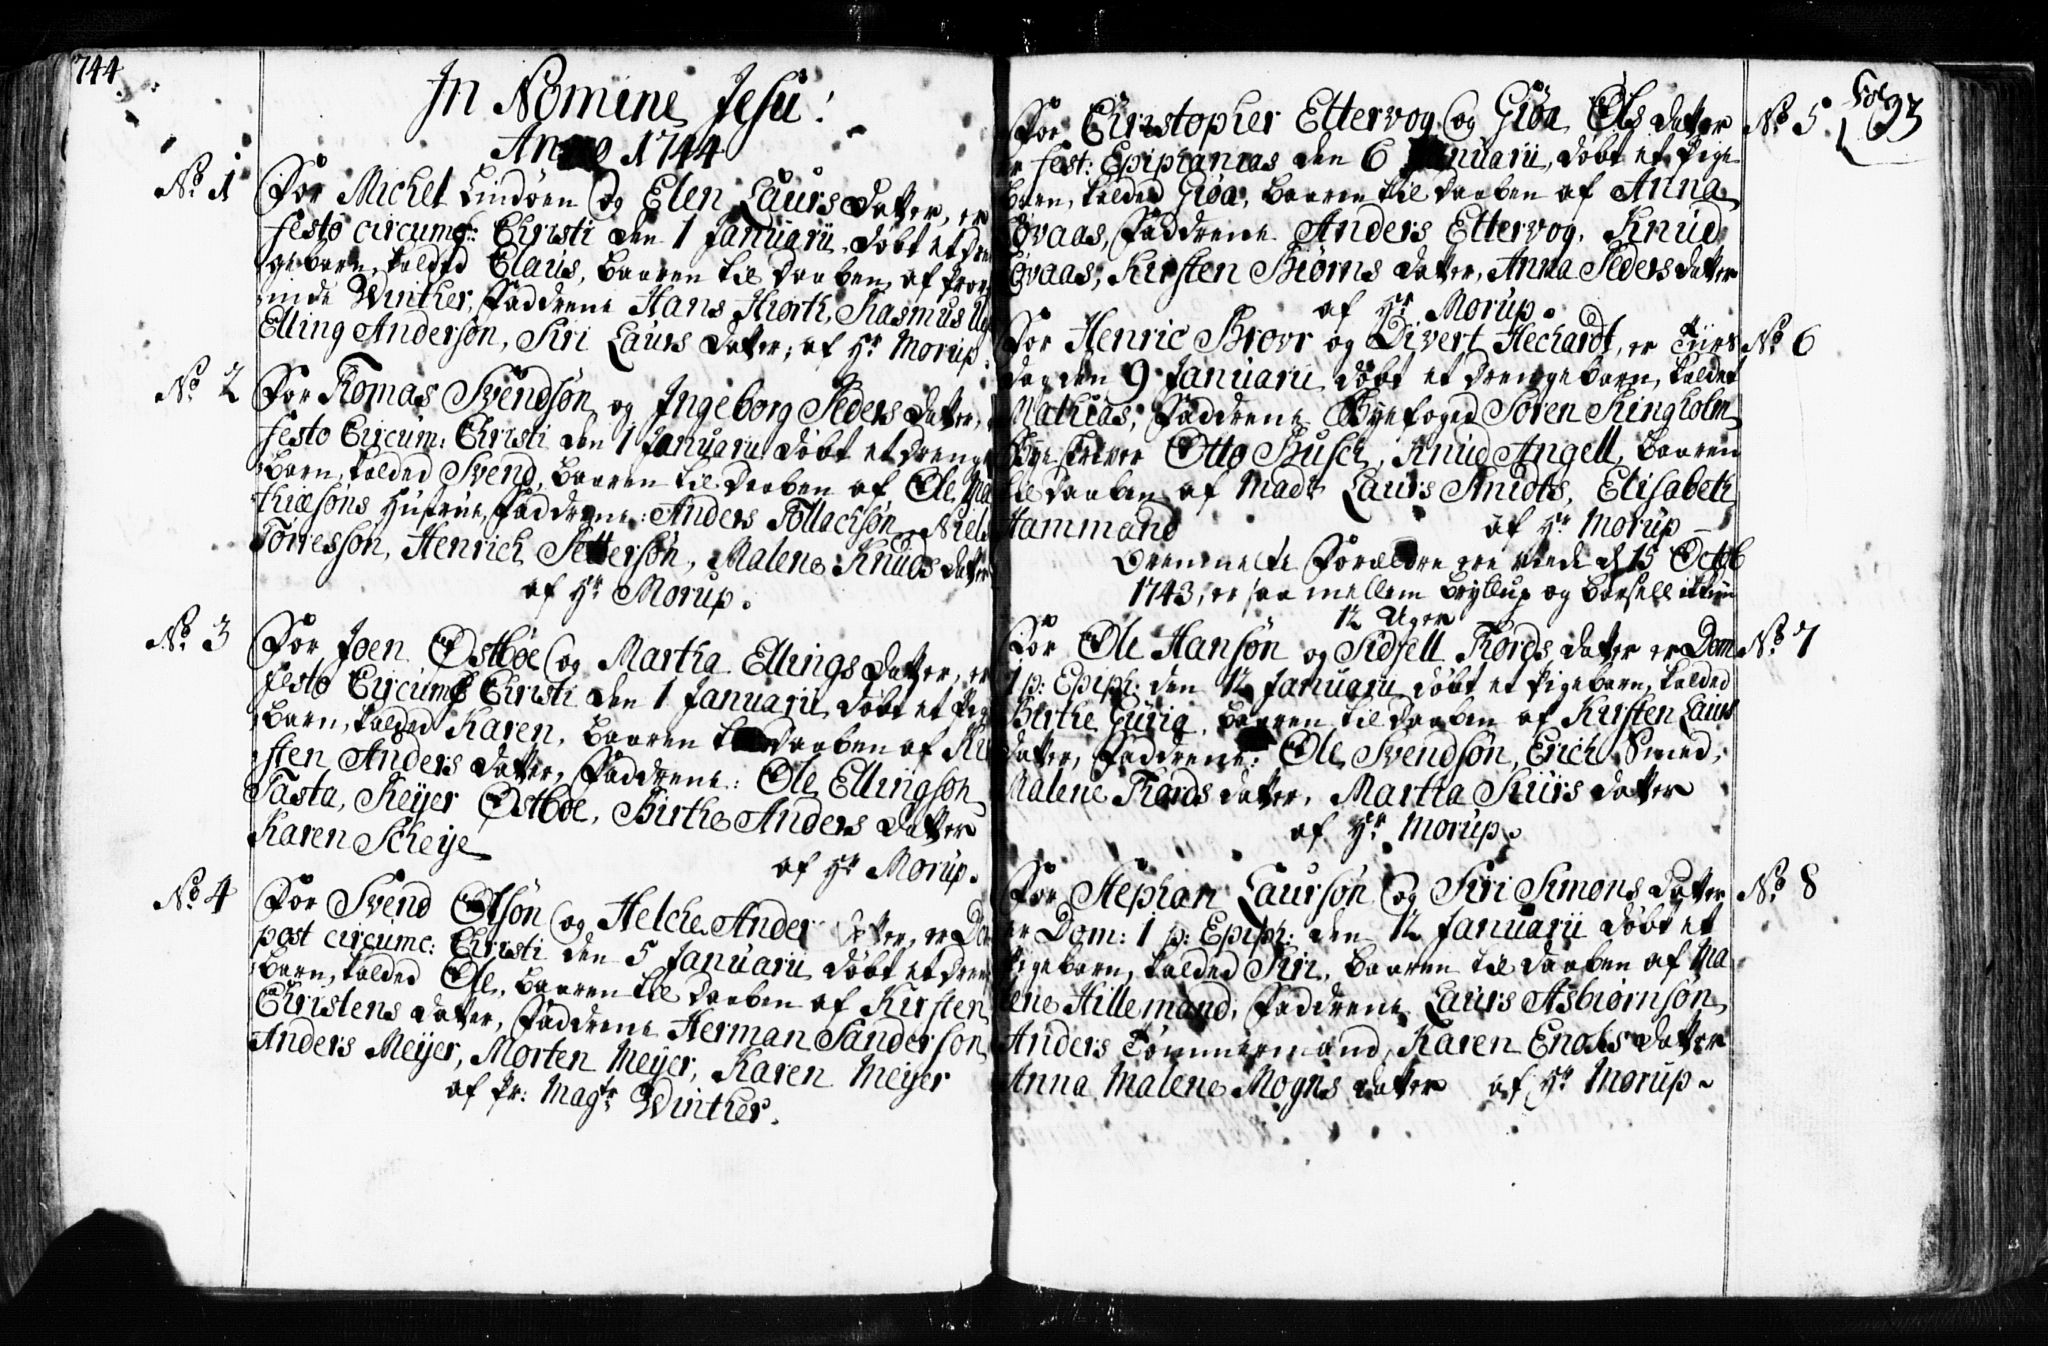 744.
In Nomine Jesu!
Anno 1744
No 1 For Michel Lindøen og Elen Laurs datter, er
festo circumc: Christi den 1 Januarii, døbt et dren
gebarn, kalded Claus, baaren til daaben, af Prov
inde Winther, Faddrene Hans Hiorth, Rasmus
Elling Anderson, Siri Laurs datter, af Hr Morup.
No 2 For Thomas Svendsøn og Ingeborg Peders datter,
festo Circum: Christi den 1 Januarii døbt et drenge
barn, kalded Svend, baaren til daaben af Ole Ma
thiæsøns Hustrue, Faddrene: Anders Tollachsøn, Niels
Torressøn, Henrich Pettersøn, Malene Knuds datter
af Hr Morup.
No 3 For Joen Østbøe og Martha Ellings datter, er
festo Circumc Christi den 1 Januarii døbt et Pige
barn, kalded Karen, baaren til daaben af Kir
sten Anders datter, Faddrene: Ole Ellingsøn
Tasta, Reijer Østbøe, Birthe Anders datter
Karen Scheije
af Hr Morup.
No 4 For Svend Olsøn og Helche Anders datter, er Dom
post circumc: Christi den 5 Januarii døbt et dren
barn, kalded Ole, baaren til daaben af Kirsten
Christens datter, Faddrene Herman Sanderson
Anders Meijer, Morten Meijer, Karen Meijer
af Pr: Magr Winther.
Fol 93
For Christopher Ettervog og Giøa Ols datter No 5
er fest: Epiphanias den 6 Januarii, døbt et Pige
barn, kalded Giøa, baaren til daaben af Anna
Løvaas, Faddrene Anders Ettervog, Knud
Løvaas, Kirsten Biørns datter, Anna Peders datter
af Hr Morup.
For Henric Brovr og Divert Hechardt, er Tiirs No 6
dag den 9 Januarii døbt et drengebarn, kaldet
Mathias, Faddrene Byefoged Søren Ringholm
Byeskriver Otto Busch, Knud Angell, baaren
til daaben af Madr Laurs Smidts, Elisabeth
Hammand af Hr Morup
Ovenmelte Forældre ere viede d 15 Octob
1743, er saa mellem bryllup og barsell ikkun
12 Uger
For Ole Hansøn og Sidsell Thords datter er Dom No 7
1 p: Epiph: den 12 Januarii døbt et Pigebarn, kalded
Birthe Guria, baaren til daaben af Kirsten Laurs
datter, Faddrene: Ole Svendsøn, Erich Smed,
Malene Thords datter, Martha Siurs datter
af Hr Morup.
For Stephan Laursøn og Siri Simons datter No 8
er Dom: 1 p: Epiph: den 12 Januarii døbt et
Pigebarn, kalded Siri, baaren til daaben af Ma
lene Hillemand, Faddrene Laurs Asbiørnson
Anders Tømmermand, Karen Enoks datter
Anna Malene Mogns datter af Hr Morup